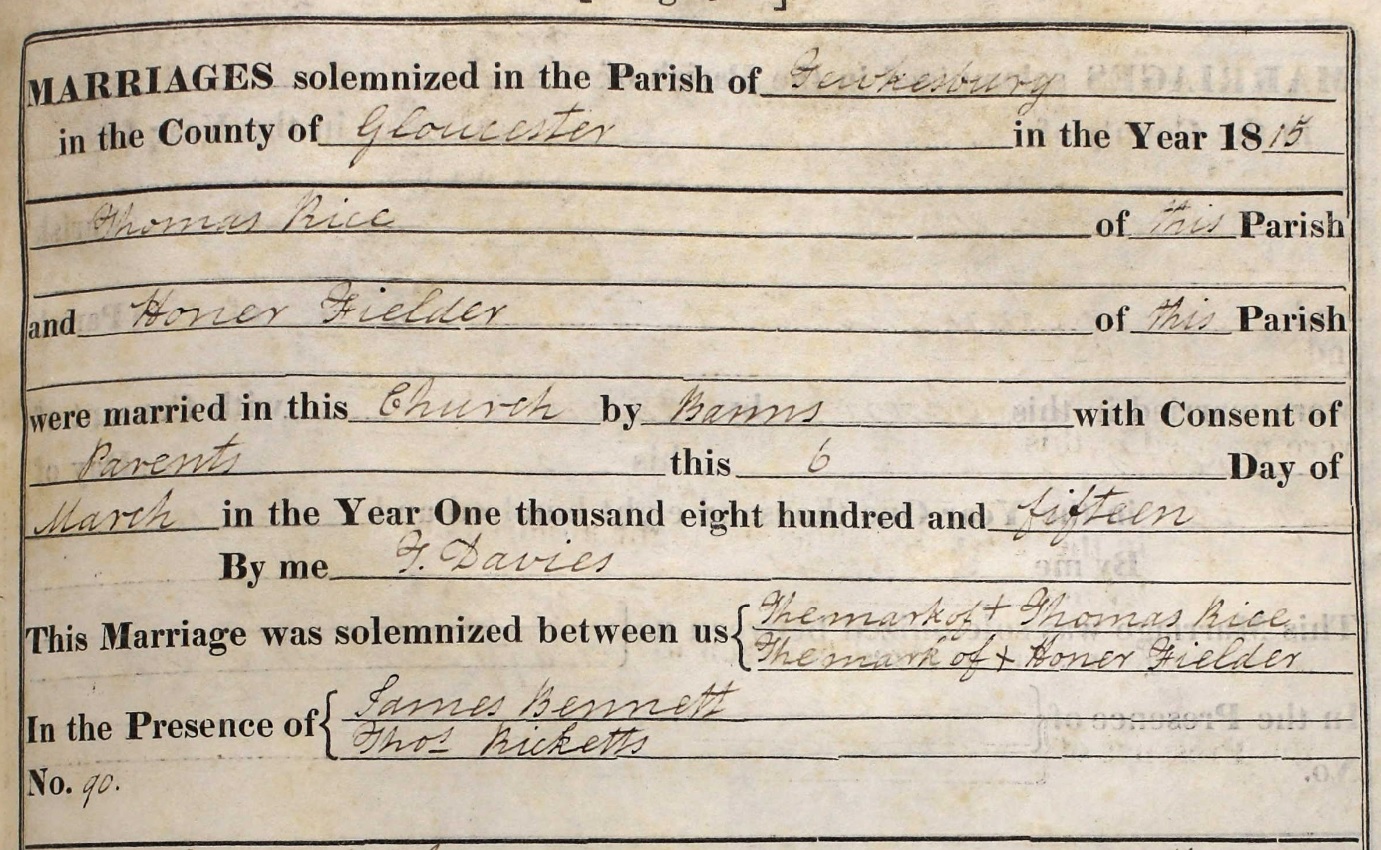 MARRIAGES solemnized in the Parish of Tewkesbury
in the County of Gloucester in the Year 1815
Thomas Rice of this Parish
and Honer Fielder of this Parish
were married in this Church by Banns with Consent of
Parents this 6 Day of
March in the Year One thousand eight hundred and fifteen
By me F. Davies
This Marriage was solemnized between us { The mark of + Thomas Rice
The mark of + Honer Fielder
In the Presence of { James Bennett
Thos Ricketts
No. 90.